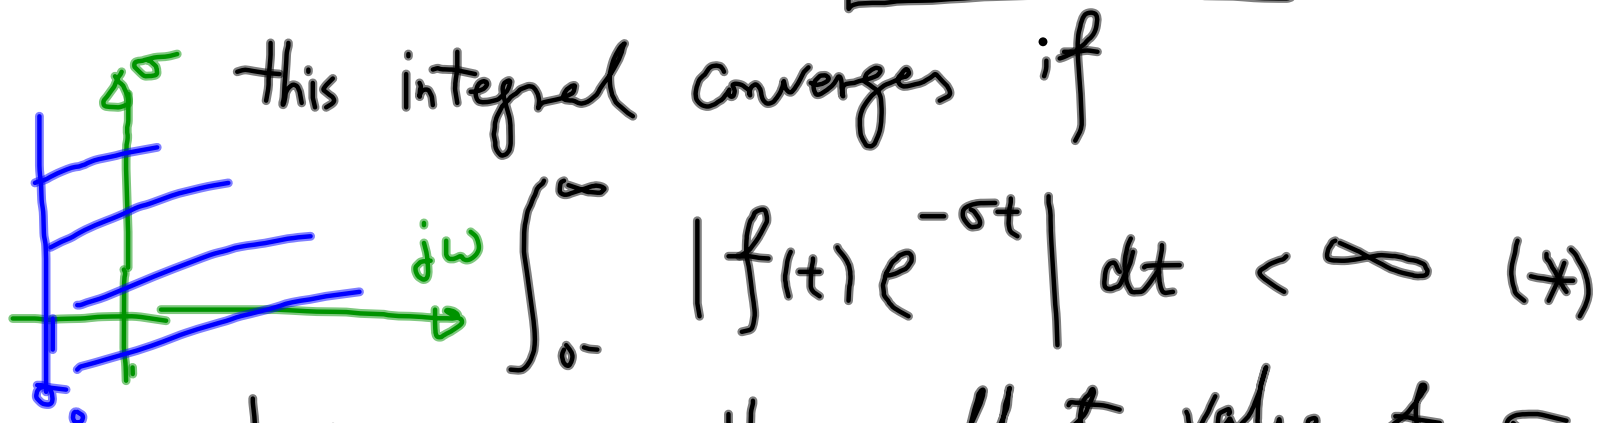 σ this integral converges if
jω ∫₀₋^∞ |f(t) e^{-σt}| dt < ∞ (*)
σ₀
value of σ